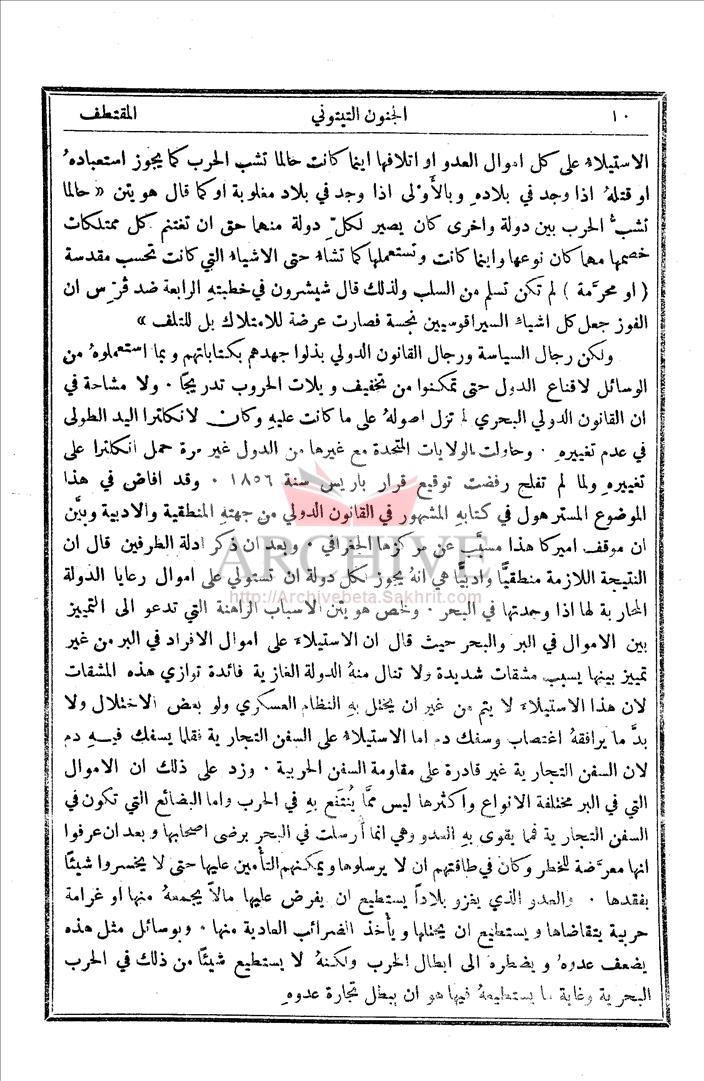 ١٠ الجنون التيتوني المقتطف
الاستيلاء على كل اموال العدو او اتلافها اينما كانت حالما تشب الحرب كما يجوز استعباده
او قتلهُ اذا وجد في بلادهِ وبالأَولى اذا وجد في بلاد مغلوبة او كما قال هويتن « حالما
تشبُّ الحرب بين دولة واخرى كان يصير لكلّ دولة منهما حق ان تغتنم كل ممتلكات
خصمها مهما كان نوعها واينما كانت وتستعملها كما تشاء حتى الاشياء التي كانت تحسب مقدسة
( او محرَّمة ) لم تكن تسلم من السلب ولذلك قال شيشرون في خطبتهِ الرابعة ضد ڤرّس ان
الفوز جعل كل اشياء السيراقوسيين نجسة فصارت عرضة للامتلاك بل للتلف »
ولكن رجال السياسة ورجال القانون الدولي بذلوا جهدهم بكتاباتهم وبما استعملوهُ من
الوسائل لاقناع الدول حتى تمكنوا من تخفيف ويلات الحروب تدريجًا . ولا مشاحة في
ان القانون الدولي البحري لم تزل اصولهُ على ما كانت عليهِ وكان لانكلترا اليد الطولى
في عدم تغييرهِ . وحاولت الولايات المتحدة مع غيرها من الدول غير مرة حمل انكلترا على
تغييرهِ ولما لم تفلح رفضت توقيع قرار باريس سنة ١٨٥٦ . وقد افاض في هذا
الموضوع المستر هول في كتابهِ المشهور في القانون الدولي من جهتهِ المنطقية والادبية وبيَّن
ان موقف اميركا هذا مسبَّب عن مركزها الجغرافي . وبعد ان ذكر ادلة الطرفين قال ان
النتيجة اللازمة منطقيًّا وادبيًّا هي انهُ يجوز لكل دولة ان تستولي على اموال رعايا الدولة
المحاربة لها اذا وجدتها في البحر . ولخص هويتن الاسباب الراهنة التي تدعو الى التمييز
بين الاموال في البر والبحر حيث قال ان الاستيلاء على اموال الافراد في البر من غير
تمييز بينها يسبب مشقات شديدة ولا تنال منهُ الدولة الغازية فائدة توازي هذه المشقات
لان هذا الاستيلاء لا يتم من غير ان يختل بهِ النظام العسكري ولو بعض الاختلال ولا
بدَّ ما يرافقهُ اغتصاب وسفك دم اما الاستيلاء على السفن التجارية فقلما يسفك فيهِ دم
لان السفن التجارية غير قادرة على مقاومة السفن الحربية . وزد على ذلك ان الاموال
التي في البر مختلفة الانواع واكثرها ليس ممَّا يُنتَفع بهِ في الحرب واما البضائع التي تكون في
السفن التجارية فمما يقوى بهِ العدو وهي انما أُرسلت في البحر برضى اصحابها وبعد ان عرفوا
انها معرَّضة للخطر وكان في طاقتهم ان لا يرسلوها ويمكنهم التأمين عليها حتى لا يخسروا شيئًا
بفقدها . والعدو الذي يغزو بلادًا يستطيع ان يفرض عليها مالاً يجمعهُ منها او غرامة
حربية يتقاضاها ويستطيع ان يحتلها ويأخذ الضرائب العادية منها . وبوسائل مثل هذه
يضعف عدوهُ ويضطرهُ الى ابطال الحرب ولكنهُ لا يستطيع شيئًا من ذلك في الحرب
البحرية وغاية ما يستطيعهُ فيها هو ان يبطل تجارة عدوهِ
ARCHIVE
http://Archivebeta.Sakhrit.com